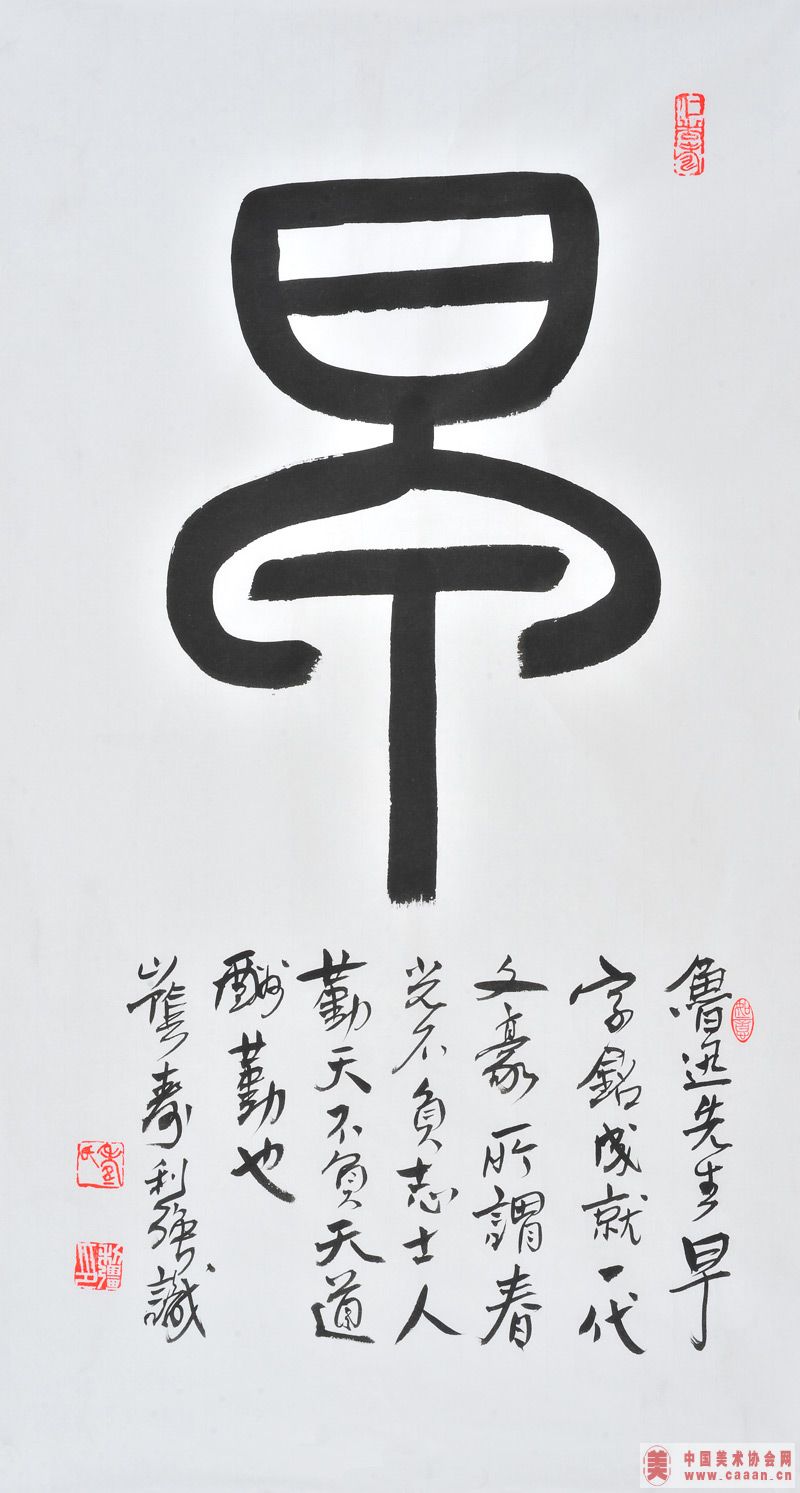 早
魯迅先生早
字銘成就一代
文豪所謂春
光不負志士人
勤天不負天道
酬勤也
壽利強識
美
中国美术协会网
www.caaan.cn